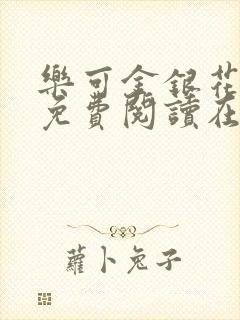 樂可金銀花
免費閱讀在
蘿卜兔子